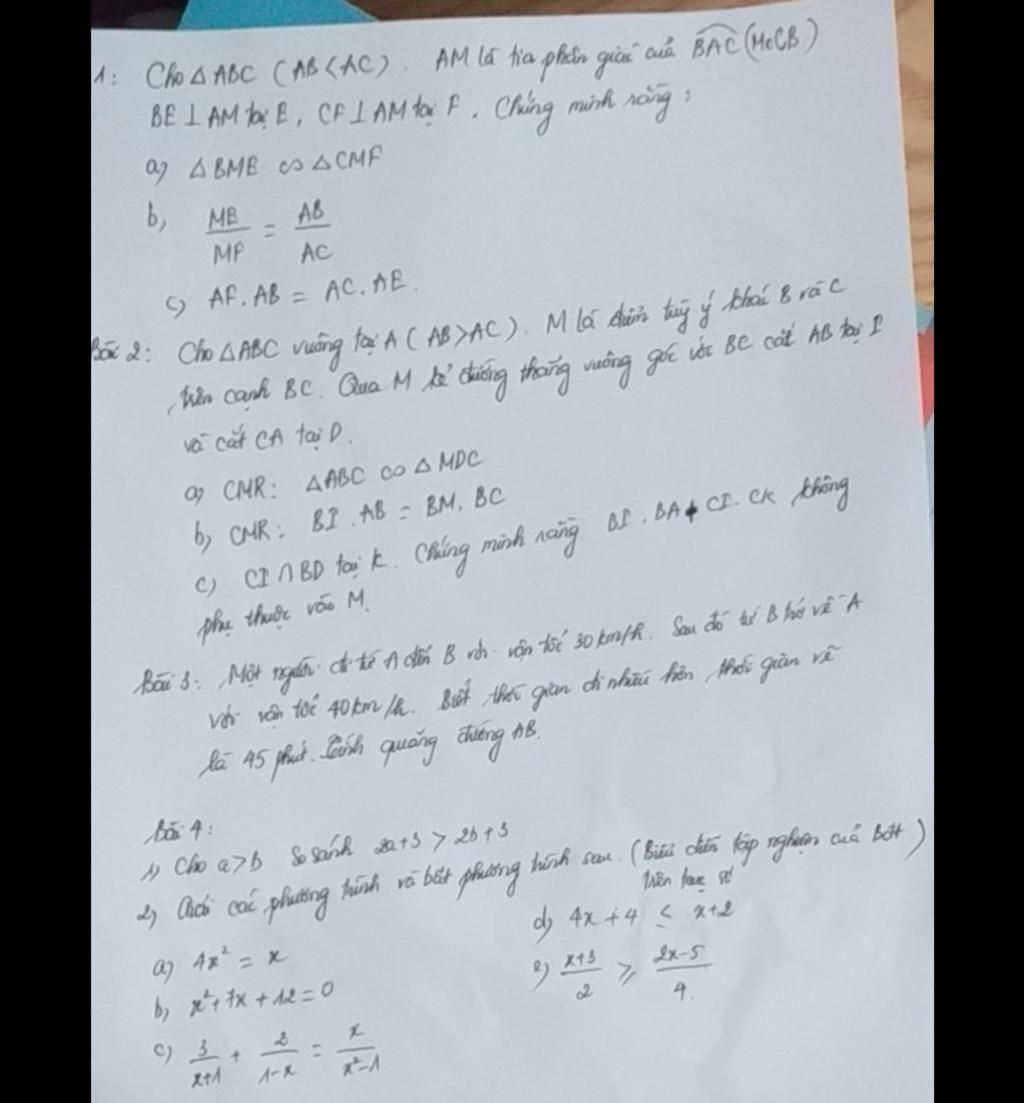 1: Cho △ABC (AB<AC). AM là tia phân giác của BAC (M∈CB)
BE ⊥ AM tại E, CF ⊥ AM tại F. Chứng minh rằng:
a) △BME ∽ △CMF
b, ME/MF = AB/AC
c) AF.AB = AC.AE.
Bài 2: Cho △ABC vuông tại A (AB>AC). M là điểm tuỳ ý khác B và C
trên cạnh BC. Qua M kẻ đường thẳng vuông góc với BC cắt AB tại I
và cắt CA tại D.
a) CMR: △ABC ∽ △MDC
b) CMR: BI.AB = BM.BC
c) CI ∩ BD tại K. Chứng minh rằng BI.BA + CI.CK không
phụ thuộc vào M.
Bài 3: Một người đi từ A đến B với vận tốc 30km/h. Sau đó từ B trở về A
với vận tốc 40km/h. Biết thời gian đi nhiều hơn thời gian về
là 45 phút. Tính quãng đường AB.
Bài 4:
1) Cho a>b So sánh 2a+3 > 2b+3
2) Giải các phương trình và bất phương trình sau (Biểu diễn tập nghiệm của Bất)
trên trục số
a) 4x² = x
b) x²+7x+12=0
c) 3/(x+1) + 2/(1-x) = x/(x²-1)
d) 4x+4 ≤ x+2
e) (x+3)/2 ⩾ (2x-5)/4.